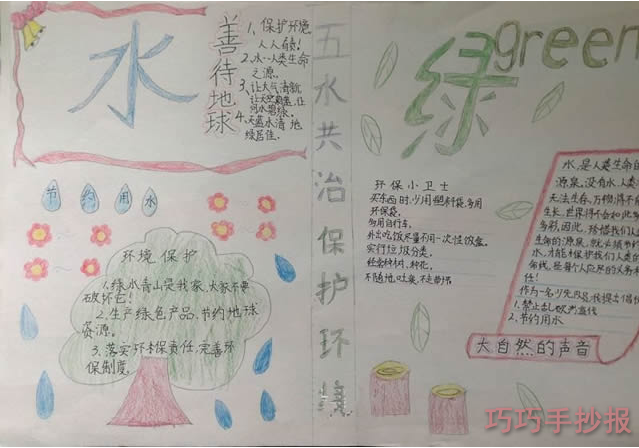 水
善待地球
1、保护环境
人人有责!
2.水--人类生命
之源。
3、让大气清新
让天空蔚蓝,让
河水碧绿。
4、天蓝水清 地
绿居佳.
节约用水
环境保护
1.绿水青山是我家,大家不要
破坏它!
2.生产绿色产品、节约地球
资源。
3.落实环保责任,完善环
保制度.
五水共治保护环境
绿
green
环保小卫士
买东西时,少用塑料袋,多用
环保袋,
多用自行车,
外出吃饭尽量不用一次性饭盒,
实行垃圾分类,
经常种树,种花,
不随地吐痰,不走草坪
水,是人类生命的
源泉,没有水,人类
无法生存,万物得不
生长,世界得不会如此
多彩,因此,珍惜我们
生命的源泉,就必须节
水,才能保护我们人类的
命线,
任!
作为一名少先队员,我提出倡
1、禁止
2、节约用水
大自然的声音
巧巧手抄报